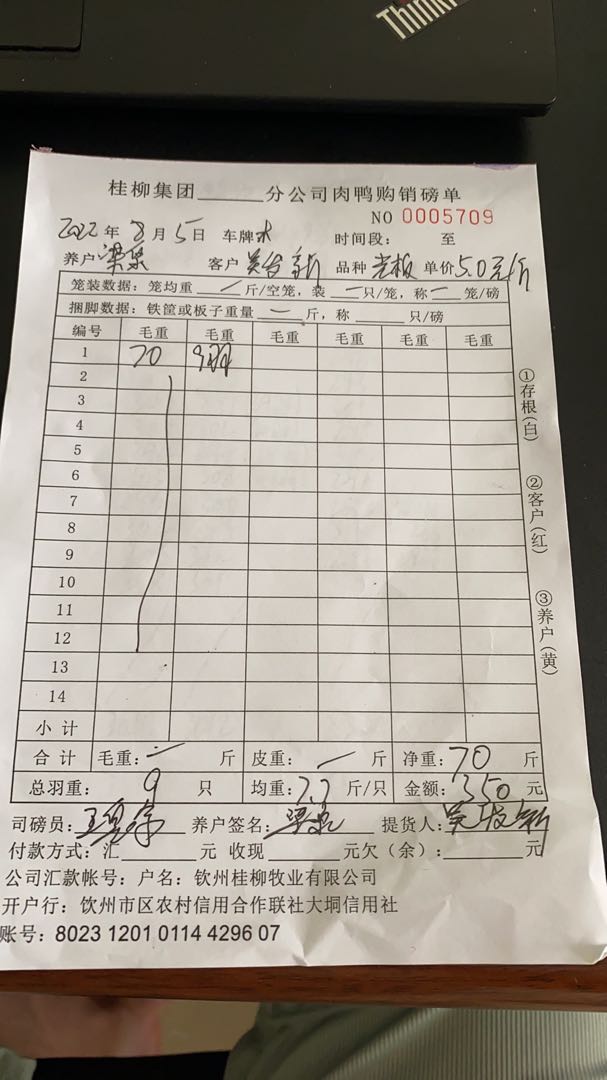 Think
桂柳集团______分公司肉鸭购销磅单
NO 0005709
2022年8月5日 车牌 时间段: 至
养户 梁 客户 吴 新 品种 光板 单价5.0元/斤
笼装数据: 笼均重 / 斤/空笼, 装 一 只/笼, 称 一 笼/磅
捆脚数据: 铁筐或板子重量 一 斤, 称______只/磅
编号 毛重 毛重 毛重 毛重 毛重 毛重
1 70 9羽
2
3
4
5
6
7
8
9
10
11
12
13
14
小计
合计 毛重: 一 斤 皮重: 一 斤 净重: 70 斤
总羽重: 9 只 均重: 7.7 斤/只 金额: 350 元
司磅员: 王 养户签名: 梁 提货人: 吴 新
付款方式: 汇______元 收现______元欠(余):______元
公司汇款帐号: 户名: 钦州桂柳牧业有限公司
开户行: 钦州市区农村信用合作联社大垌信用社
账号: 8023 1201 0114 4296 07
①存根(白)
②客户(红)
③养户(黄)